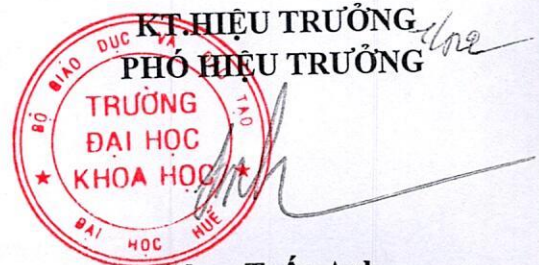 KT.HIỆU TRƯỞNG
PHÓ HIỆU TRƯỞNG
BỘ GIÁO DỤC VÀ ĐÀO TẠO
TRƯỜNG
ĐẠI HỌC
KHOA HỌC
ĐẠI HỌC HUẾ